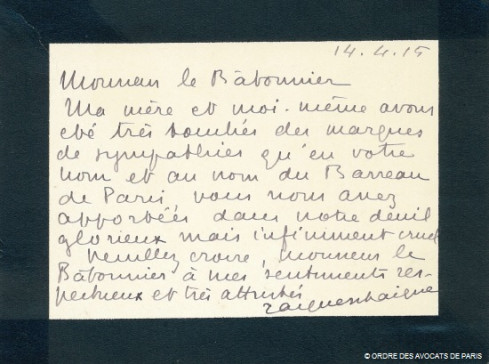 14.4.15
Monsieur le Bâtonnier
Ma mère et moi-même avons
été très touchés des marques
de sympathies qu'en votre
nom et au nom du Barreau
de Paris, vous nous avez
apportées dans notre deuil
glorieux mais infiniment cruel
Veuillez croire, Monsieur le
Bâtonnier à mes sentiments res-
pectueux et très attristés
© ORDRE DES AVOCATS DE PARIS